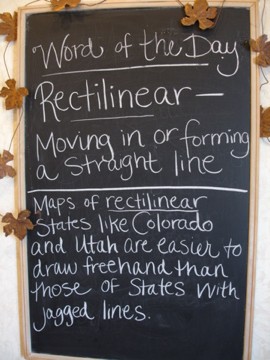 Word of the Day
Rectilinear —
Moving in or forming
a straight line
Maps of rectilinear
States like Colorado
and Utah are easier to
draw freehand than
those of States with
jagged lines.